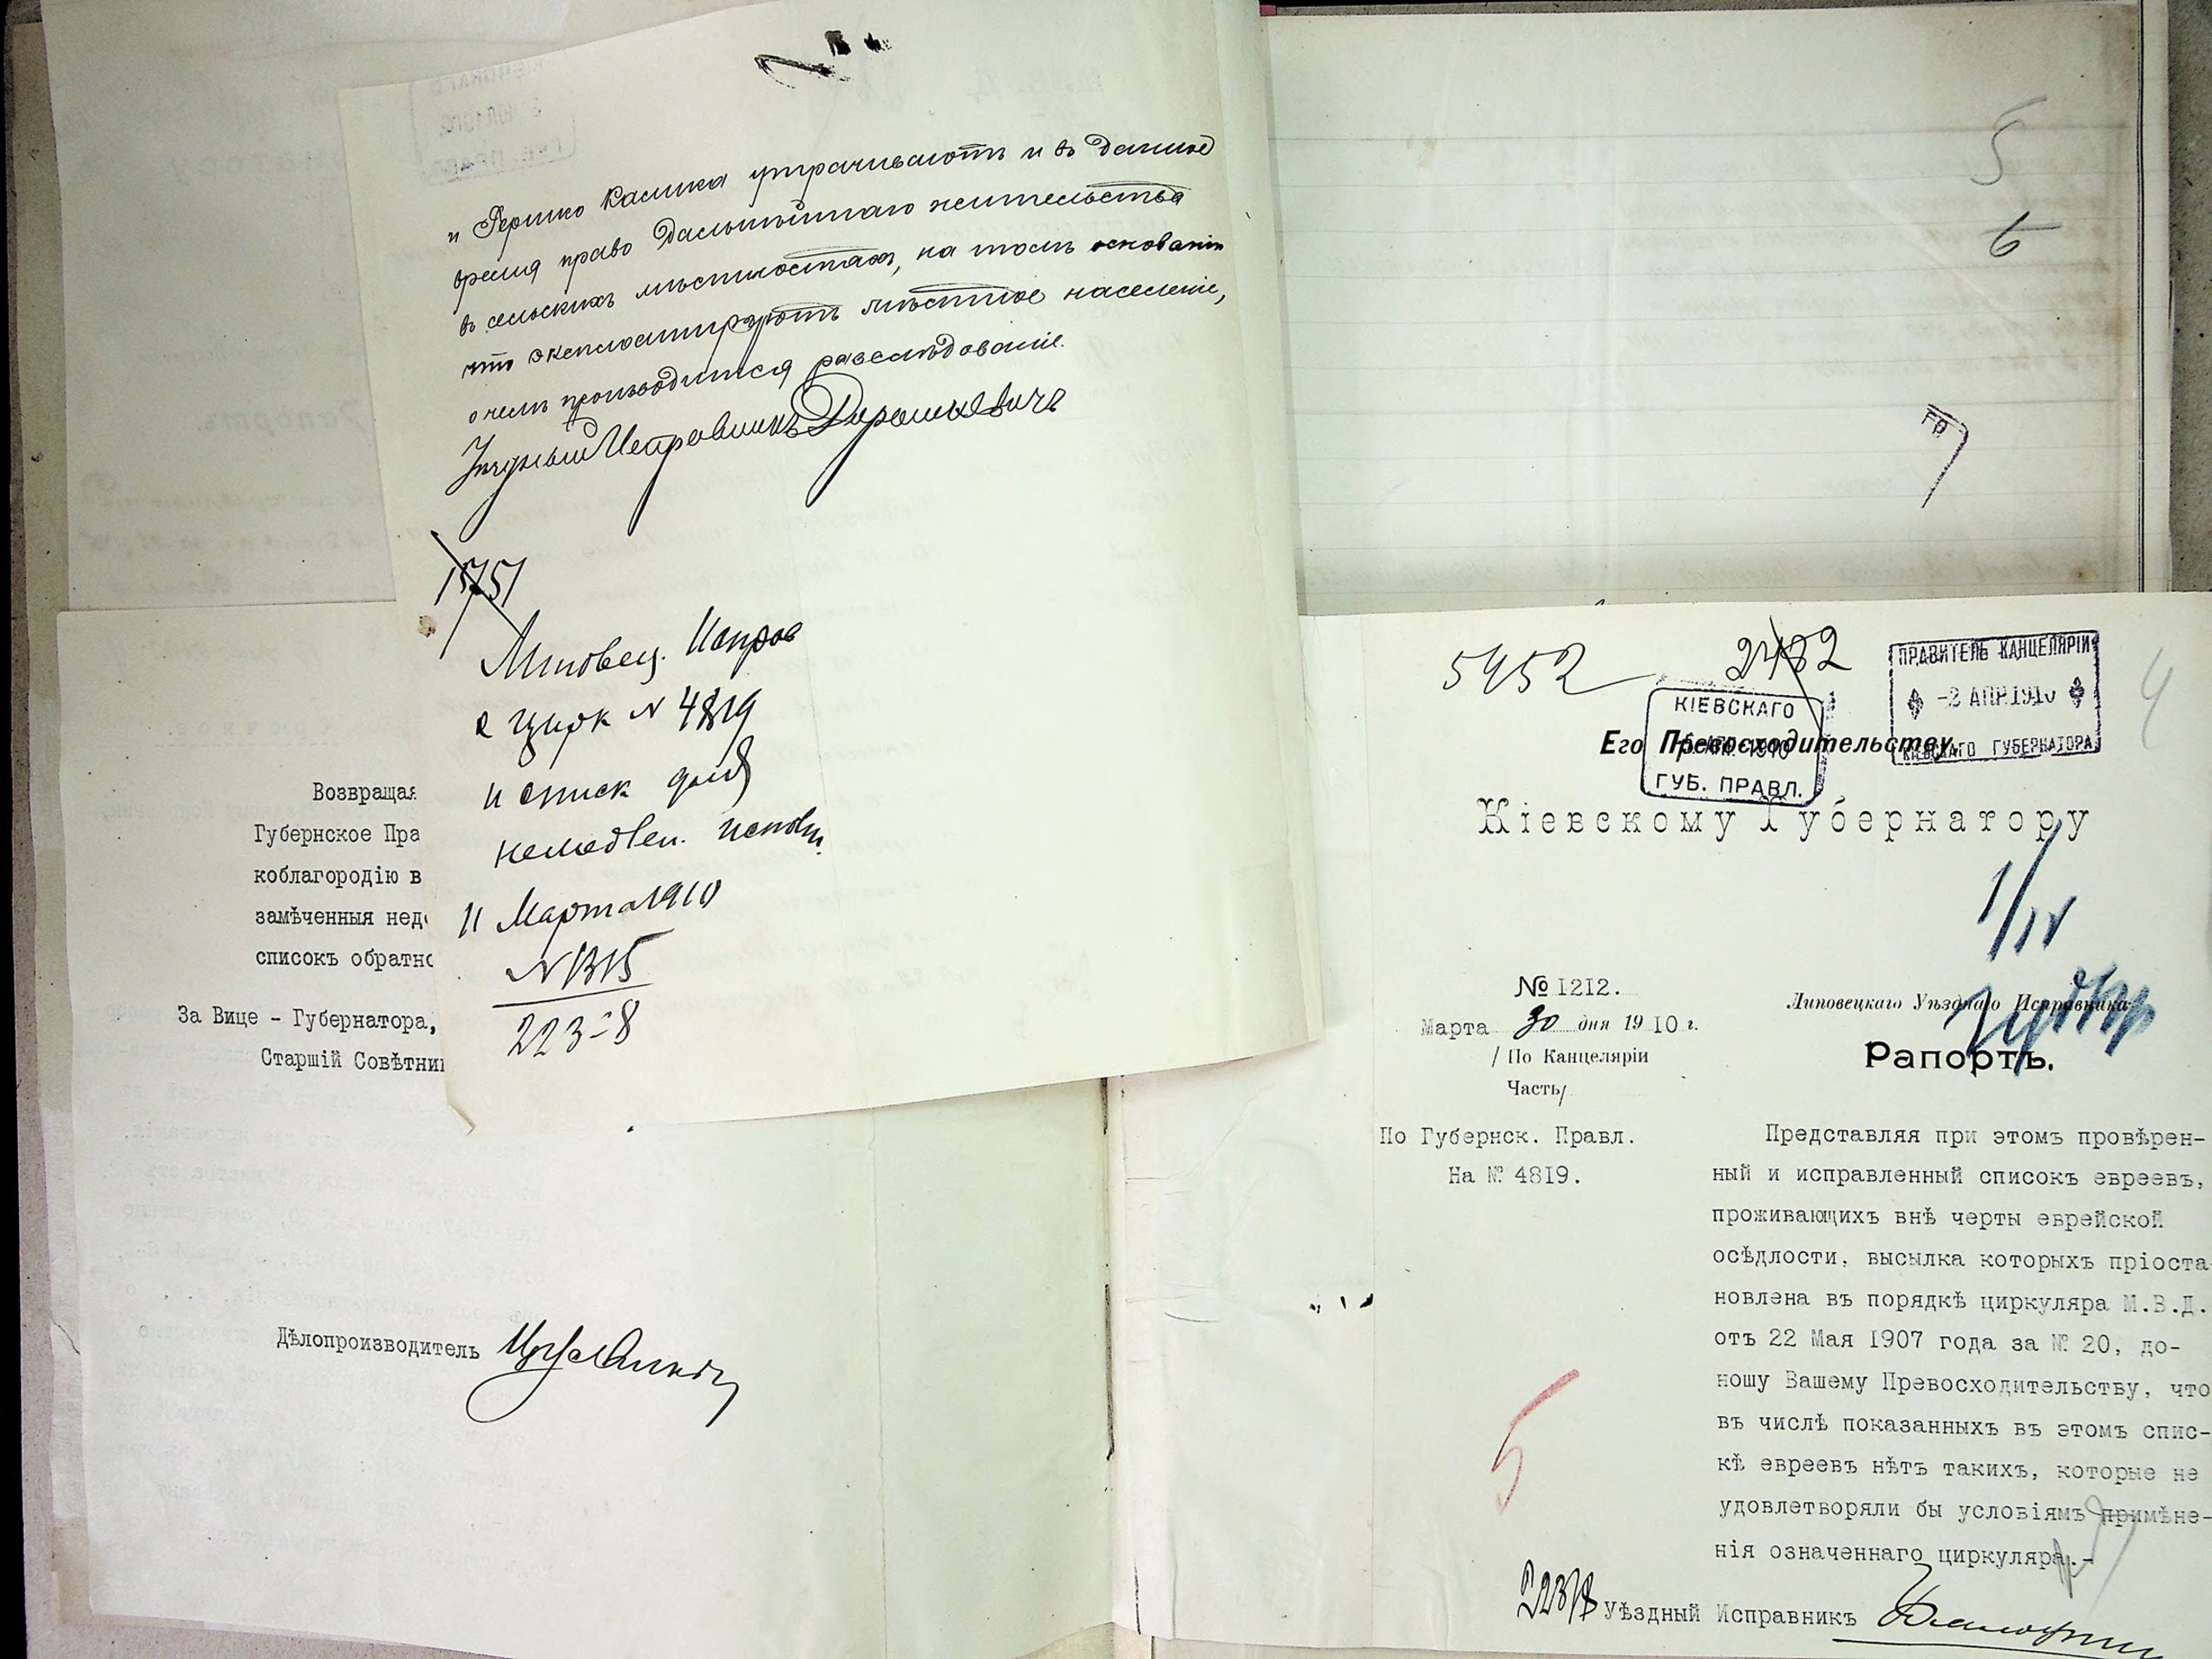 и Гершко Калика утрачивають и въ данное
время право дальнѣйшаго жительства
въ сельскихъ мѣстностяхъ, на томъ основаніи
что эксплоатируютъ мѣстное населеніе,
о чемъ производится разслѣдованіе.
Уѣздный Исправникъ
15751
Липовец. Исправ
Цирк № 4819
и списк для
немедлен. исполн.
11 Марта 1910
№ 1315
223-8
Возвращая
Губернское Пра
коблагородію в
замѣченныя нед
списокъ обратно
За Вице - Губернатора,
Старшій Совѣтни
Дѣлопроизводитель
5
6
7
5452
2482
4
ПРАВИТЕЛЬ КАНЦЕЛЯРІИ
-2 АПР.1910
КІЕВСКАГО ГУБЕРНАТОРА
КІЕВСКАГО
1910
ГУБ. ПРАВЛ.
Его Превосходительству,
Кіевскому Губернатору
1/IV
№ 1212.
Марта 30 дня 1910 г.
/По Канцеляріи
Часть/
По Губернск. Правл.
На № 4819.
Липовецкаго Уѣзднаго Исправника
Рапортъ.
Представляя при этомъ провѣрен-
ный и исправленный списокъ евреевъ,
проживающихъ внѣ черты еврейской
осѣдлости, высылка которыхъ пріоста-
новлена въ порядкѣ циркуляра М.В.Д.
отъ 22 Мая 1907 года за № 20, до-
ношу Вашему Превосходительству, что
въ числѣ показанныхъ въ этомъ спис-
кѣ евреевъ нѣтъ такихъ, которые не
удовлетворяли бы условіямъ примѣне-
нія означеннаго циркуляра.-
5
223/8 Уѣздный Исправникъ